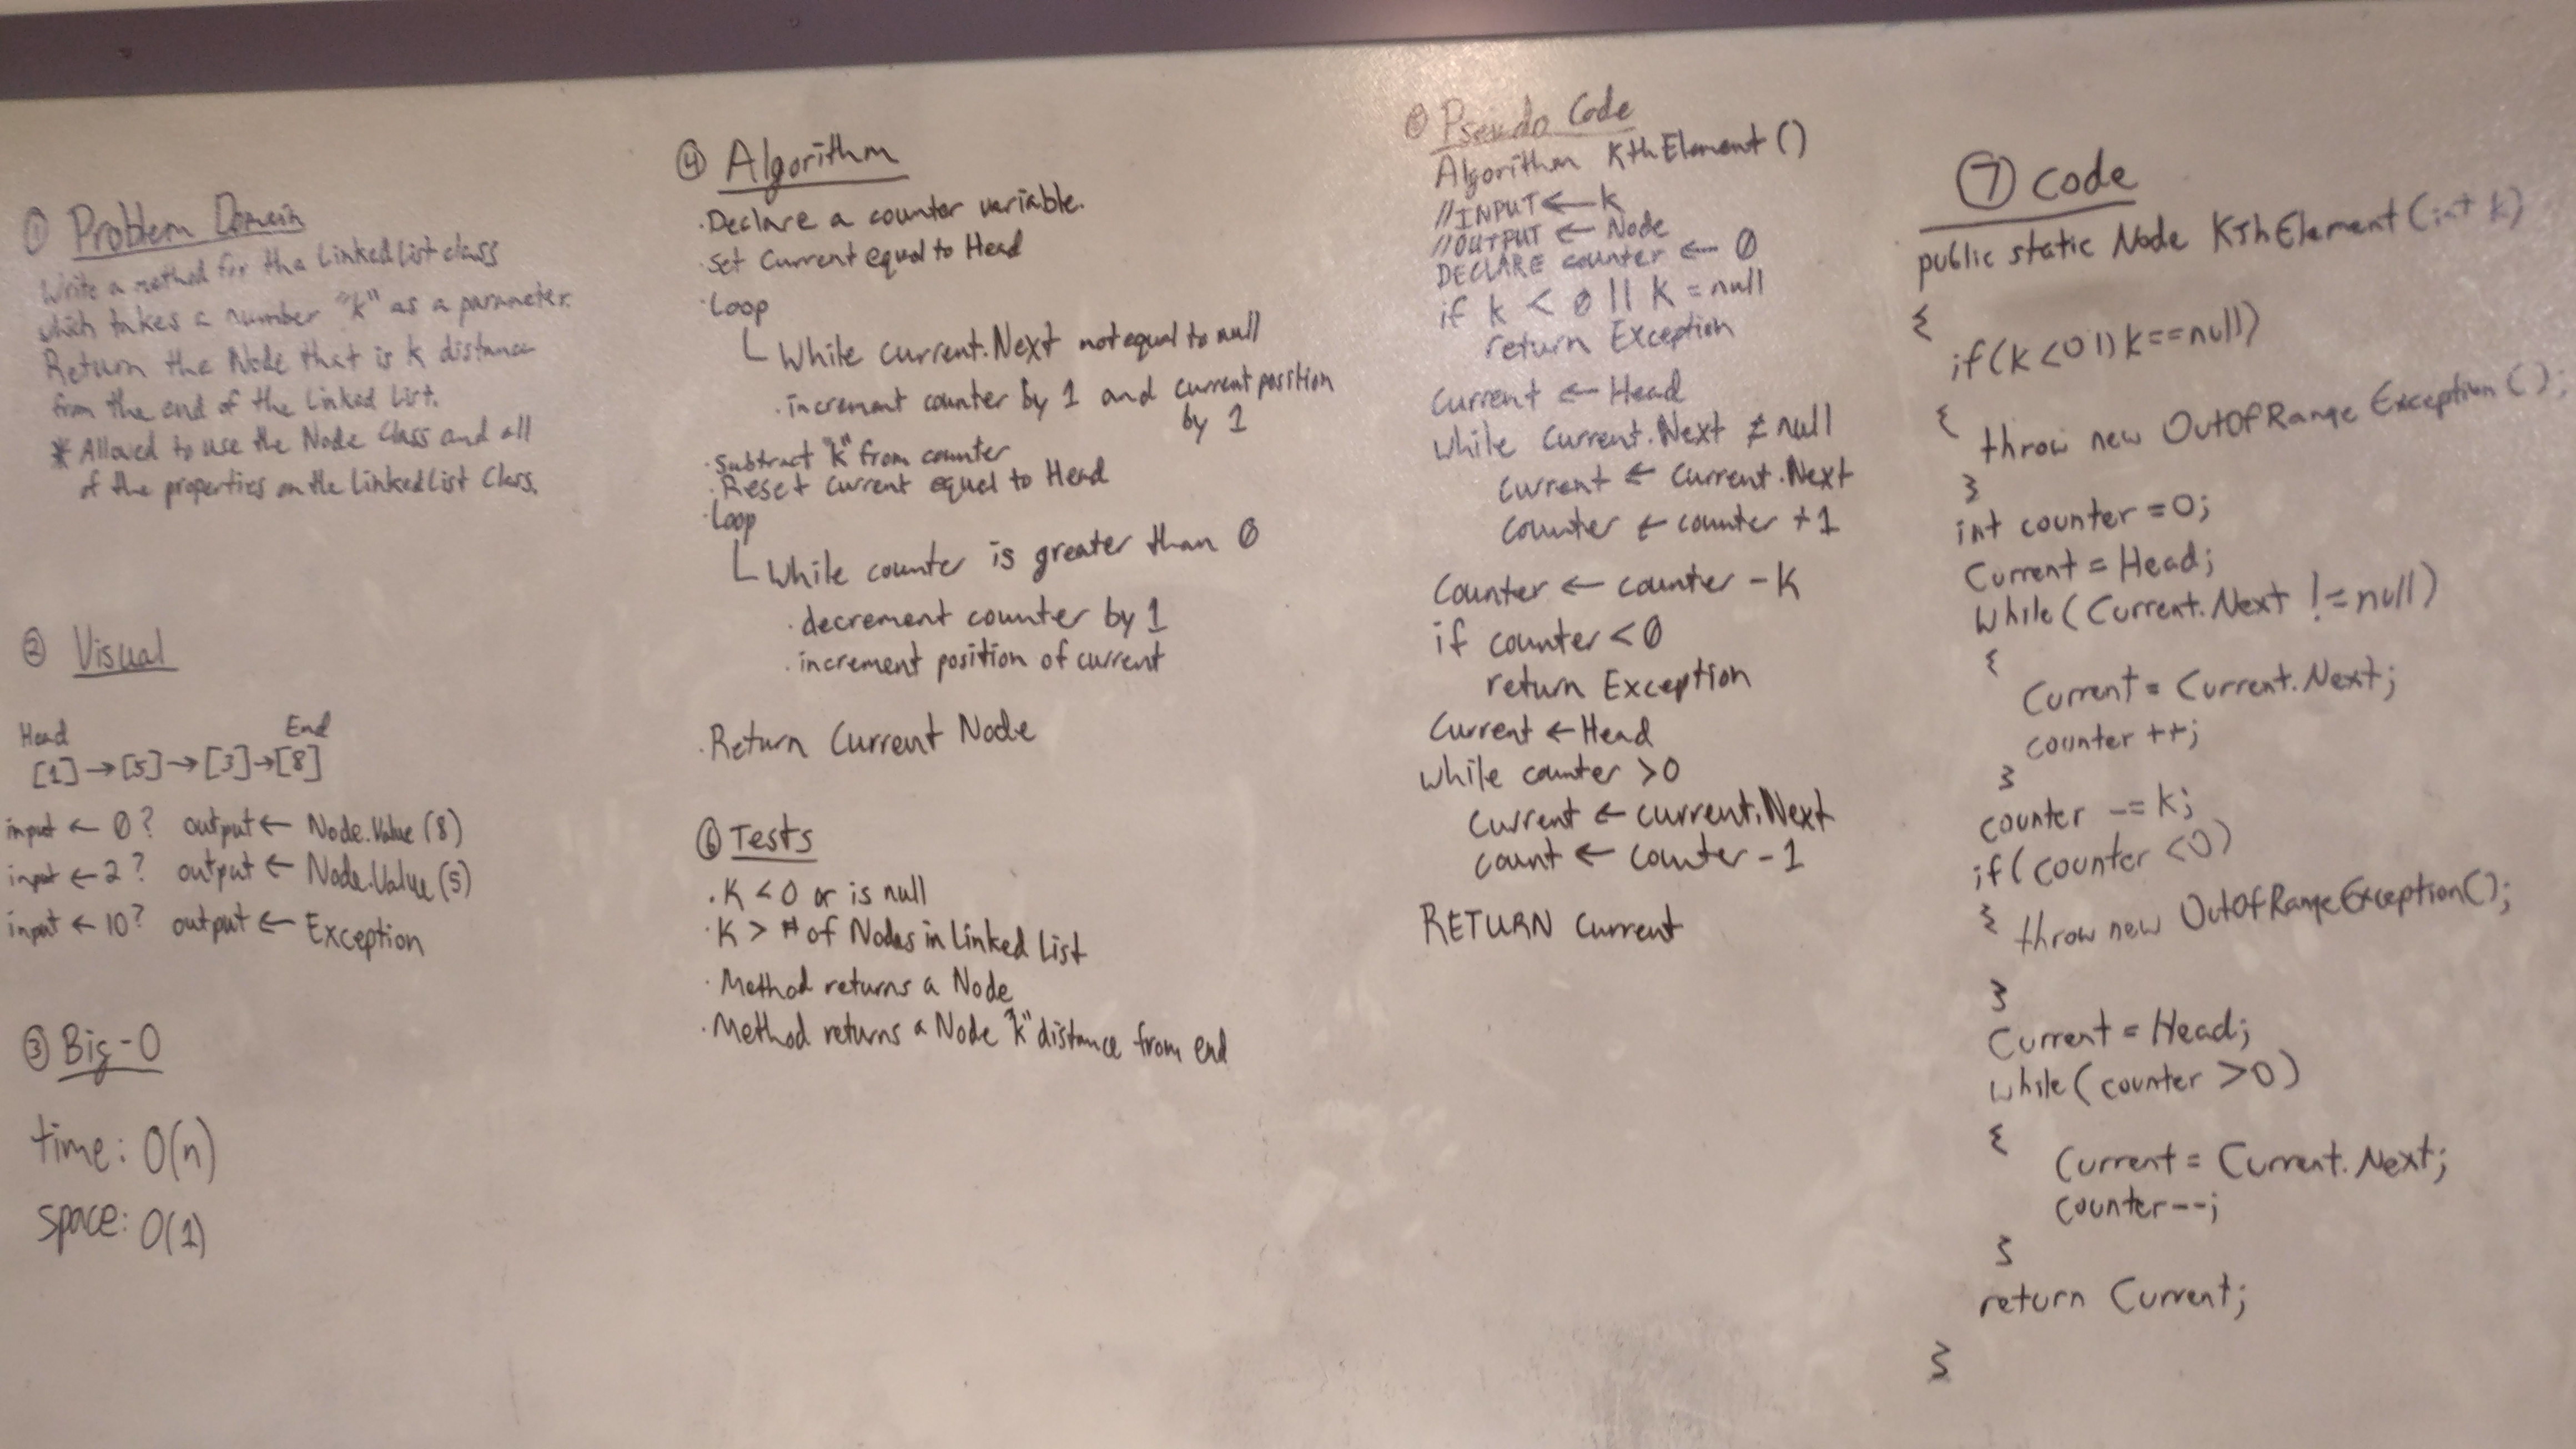 ① Problem Domain
Write a method for the Linked List class
which takes a number "k" as a parameter.
Return the Node that is k distance
from the end of the Linked List.
* Allowed to use the Node Class and all
of the properties on the Linked List Class.
② Visual
Head End
[1]→[5]→[3]→[8]
input ← 0? output ← Node.Value (8)
input ← 2? output ← Node.Value (5)
input ← 10? output ← Exception
③ Big-O
time: O(n)
space: O(1)
④ Algorithm
· Declare a counter variable.
· Set Current equal to Head
· Loop
While current.Next not equal to null
· increment counter by 1 and current position
by 1
· Subtract "k" from counter
· Reset current equal to Head
· Loop
While counter is greater than 0
· decrement counter by 1
· increment position of current
· Return Current Node
⑥ Tests
· K < 0 or is null
· K > # of Nodes in Linked List
· Method returns a Node
· Method returns a Node "k" distance from end
Pseudo Code
Algorithm KthElement()
//INPUT ← k
//OUTPUT ← Node
DECLARE counter ← 0
if k < 0 || K = null
return Exception
Current ← Head
while Current.Next ≠ null
Current ← Current.Next
Counter ← counter + 1
Counter ← counter - K
if counter < 0
return Exception
Current ← Head
while counter > 0
Current ← current.Next
count ← counter - 1
RETURN Current
⑦ Code
public static Node KthElement(int k)
{
if(k < 0 || k == null)
{
throw new OutOfRangeException();
}
int counter = 0;
Current = Head;
while(Current.Next != null)
{
Current = Current.Next;
counter ++;
}
counter -= k;
if(counter < 0)
{ throw new OutOfRangeException();
}
Current = Head;
while(counter > 0)
{
Current = Current.Next;
counter--;
}
return Current;
}